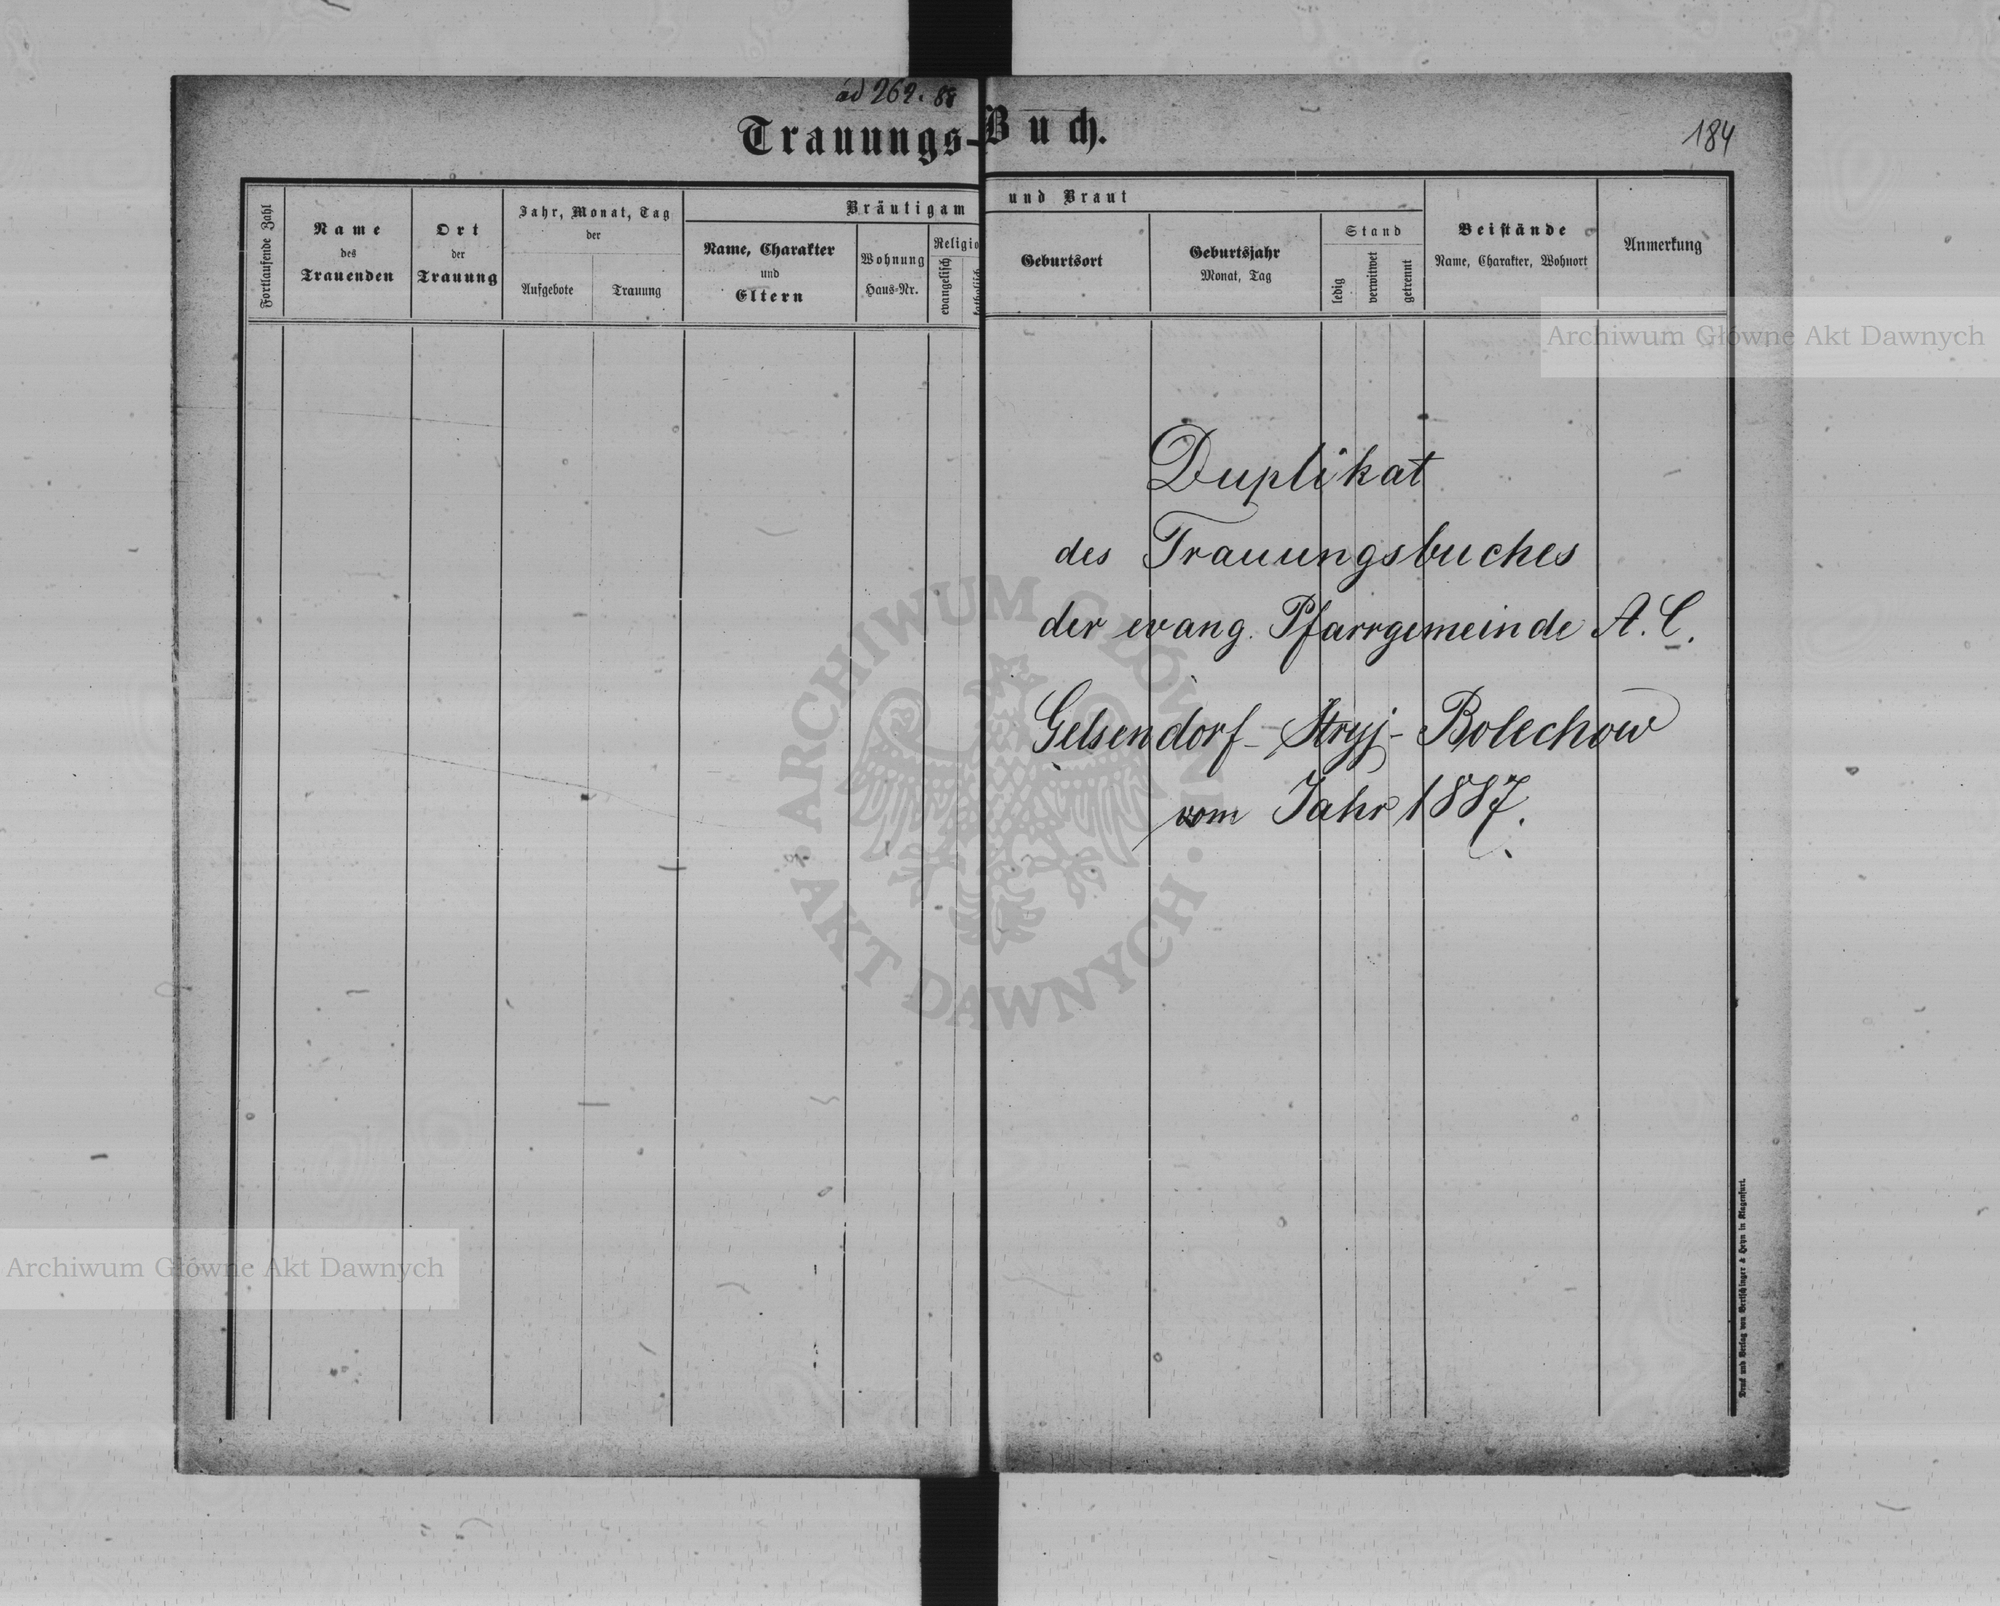 ad 262. 88
Trauungs-Buch.
184
Fortlaufende Zahl
Name
des
Trauenden
Ort
der
Trauung
Jahr, Monat, Tag
der
Aufgebote
Trauung
Bräutigam und Braut
Name, Charakter
und
Eltern
Wohnung
Haus-Nr.
Religio
evangelisch
katholisch
Geburtsort
Geburtsjahr
Monat, Tag
Stand
ledig
verwitwet
getrennt
Beistände
Name, Charakter, Wohnort
Anmerkung
Duplikat
des Trauungsbuches
der evang. Pfarrgemeinde A. C.
Gelsendorf - Stryj - Bolechow
vom Jahr 1887.
Druck und Verlag von Bertschinger & Heyn in Klagenfurt.
Archiwum Główne Akt Dawnych
Archiwum Główne Akt Dawnych
ARCHIWUM GŁÓWNE
AKT DAWNYCH